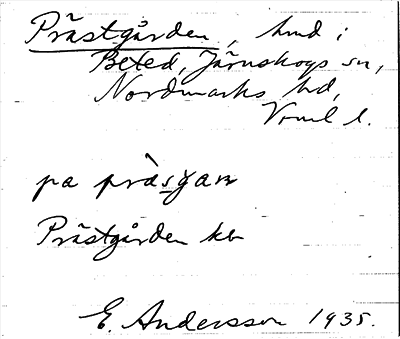 Prästgården, hmd i
Beted, Järnskogs sn,
Nordmarks hd,
Vrml l.
pa präsgaɳ
Prästgården kb
E. Andersson 1935.